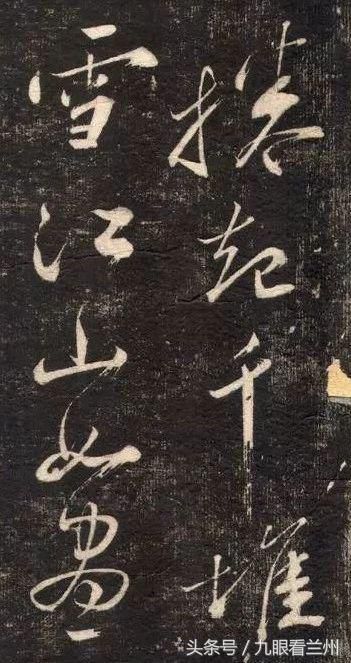 捲起千堆
雪江山如畫
头条号／九眼看兰州